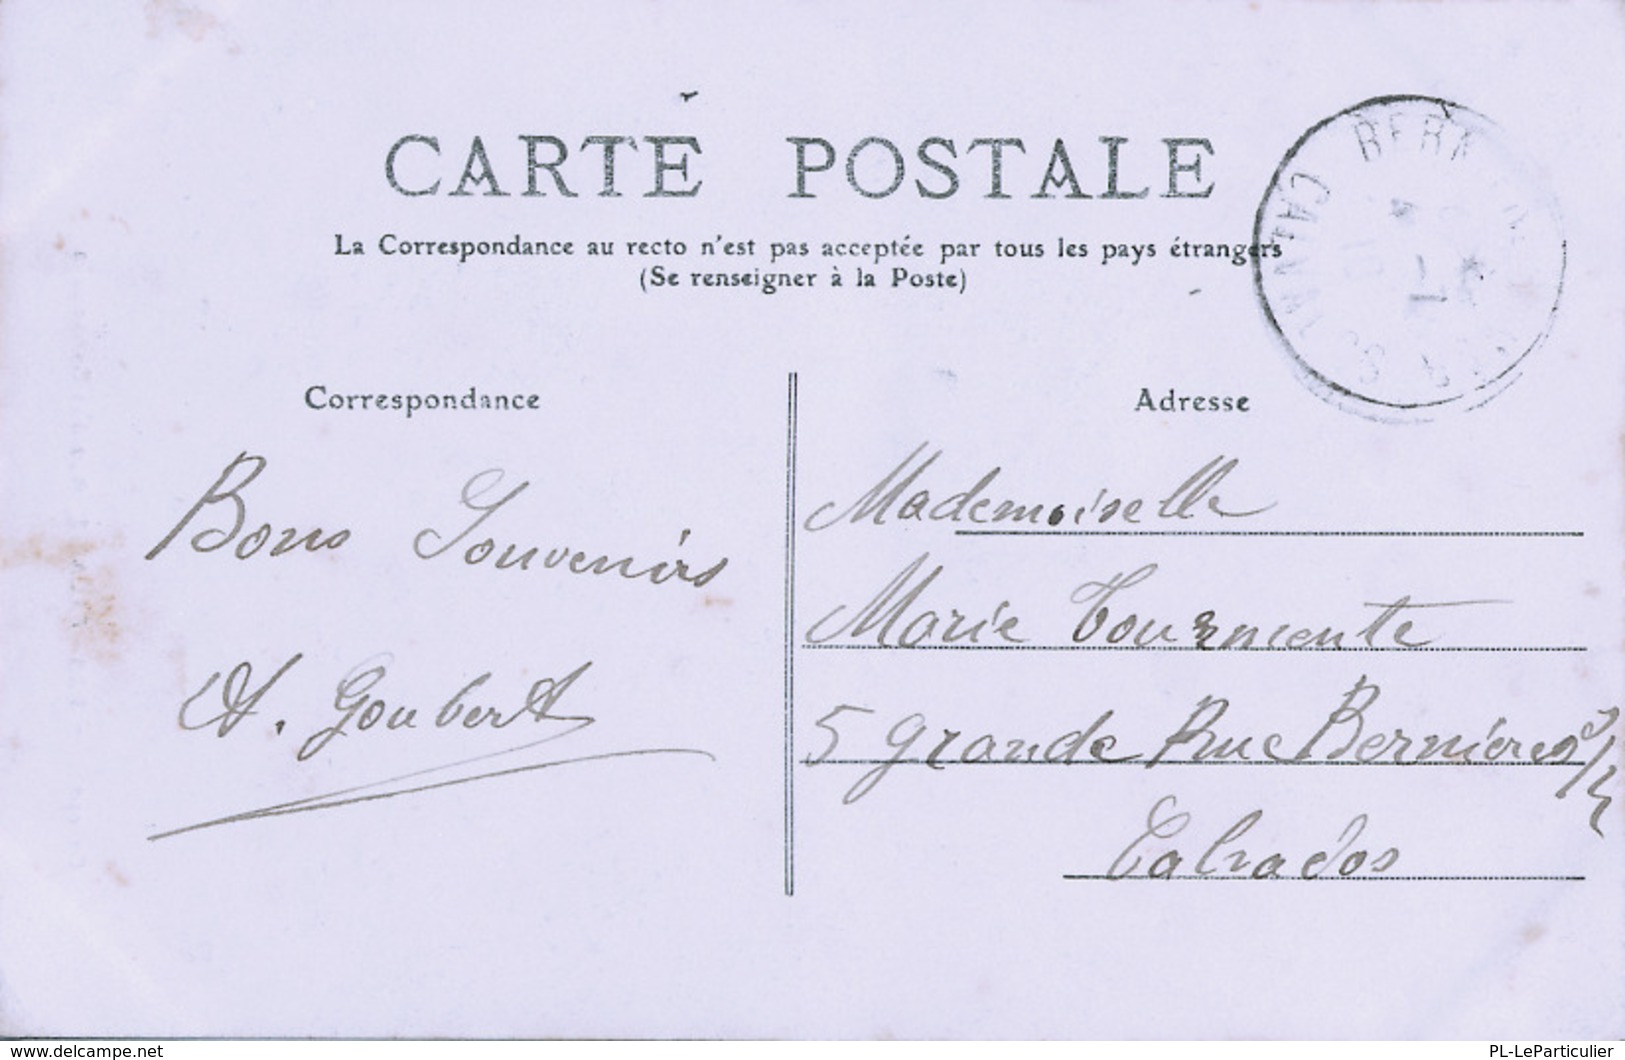 CARTE POSTALE
La Correspondance au recto n'est pas acceptée par tous les pays étrangers
(Se renseigner à la Poste)
Correspondance
Bons Souvenirs
A. Goubert
Adresse
Mademoiselle
Marie Tourmente
5 grande Rue Bernières s/
Calvados
www.delcampe.net
PL-LeParticulier